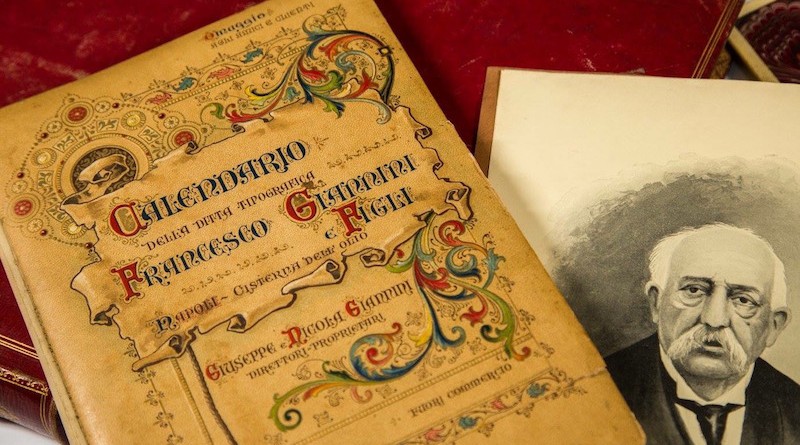 Omaggio
AGLI AMICI E CLIENTI
CALENDARIO
DELLA DITTA TIPOGRAFICA
FRANCESCO GIANNINI
E FIGLI
NAPOLI - CISTERNA DELL'OLIO
GIUSEPPE E NICOLA GIANNINI
DIRETTORI-PROPRIETARI
FUORI COMMERCIO